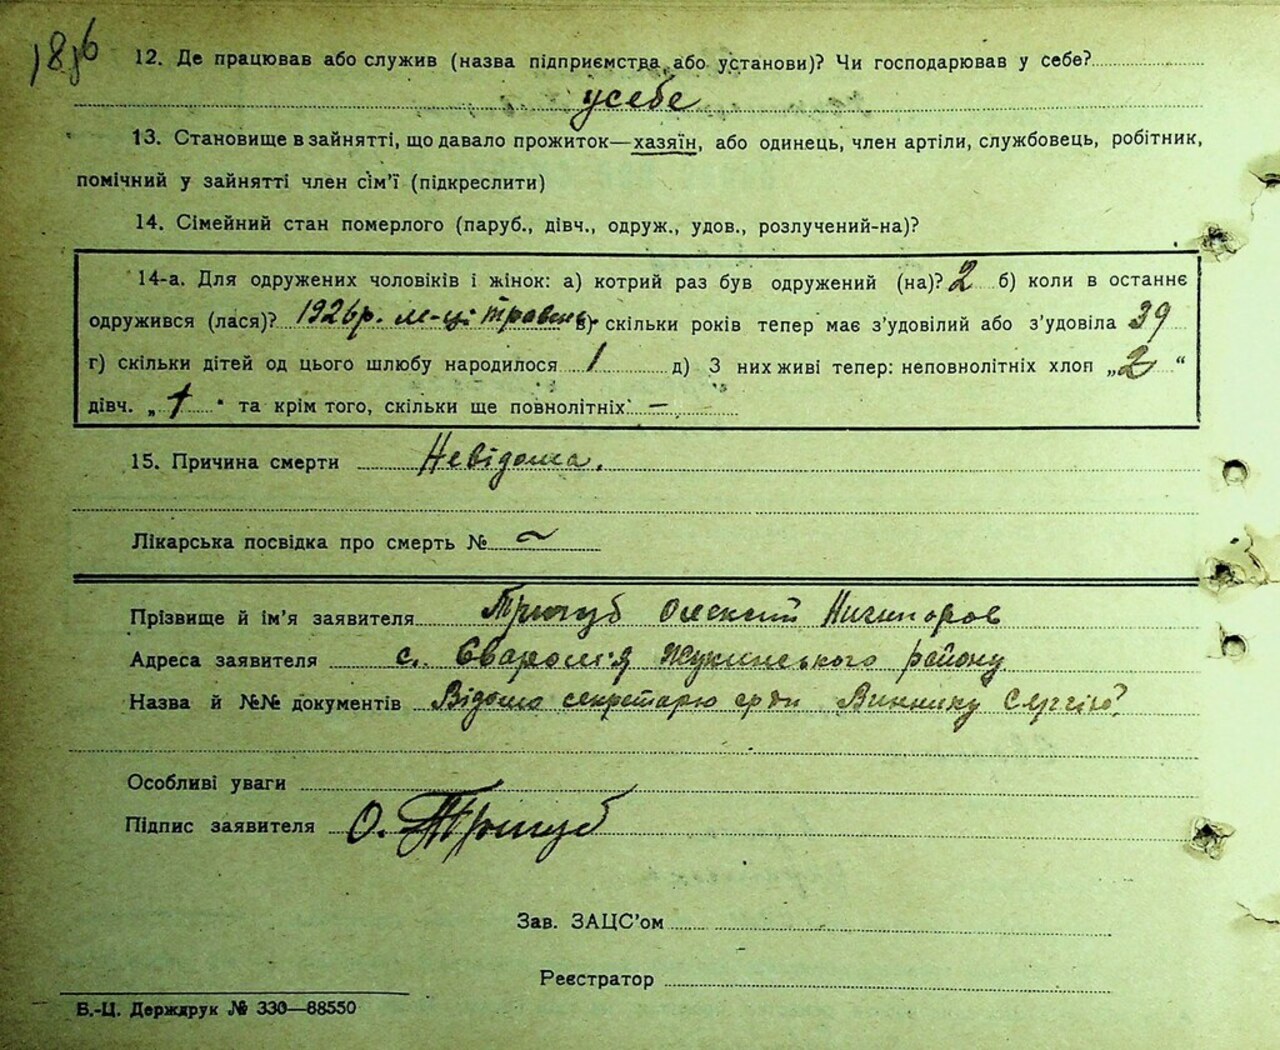 18зв
12. Де працював або служив (назва підприємства або установи)? Чи господарював у себе?
усебе
13. Становище в зайнятті, що давало прожиток—хазяїн, або одинець, член артіли, службовець, робітник,
помічний у зайнятті член сім’ї (підкреслити)
14. Сімейний стан померлого (паруб., дівч., одруж., удов., розлучений-на)?
14-а. Для одружених чоловіків і жінок: а) котрий раз був одружений (на)? 2 б) коли в останнє
одружився (лася)? 1926р. м-ці травень. в) скільки років тепер має з’удовілий або з’удовіла 39
г) скільки дітей од цього шлюбу народилося 1 д) З них живі тепер: неповнолітніх хлоп „2“
дівч. „1“ та крім того, скільки ще повнолітніх: —
15. Причина смерти Невідома.
Лікарська посвідка про смерть № ~
Прізвище й ім’я заявителя Тригуб Олексій Ничипоров
Адреса заявителя с. Єваромʼя Жукинського району
Назва й №№ документів Відома секретарю Виннику Сергію
Особливі уваги
Підпис заявителя О. Тригуб
Зав. ЗАЦС’ом
Реєстратор
Б.-Ц. Держдрук № 330—88550